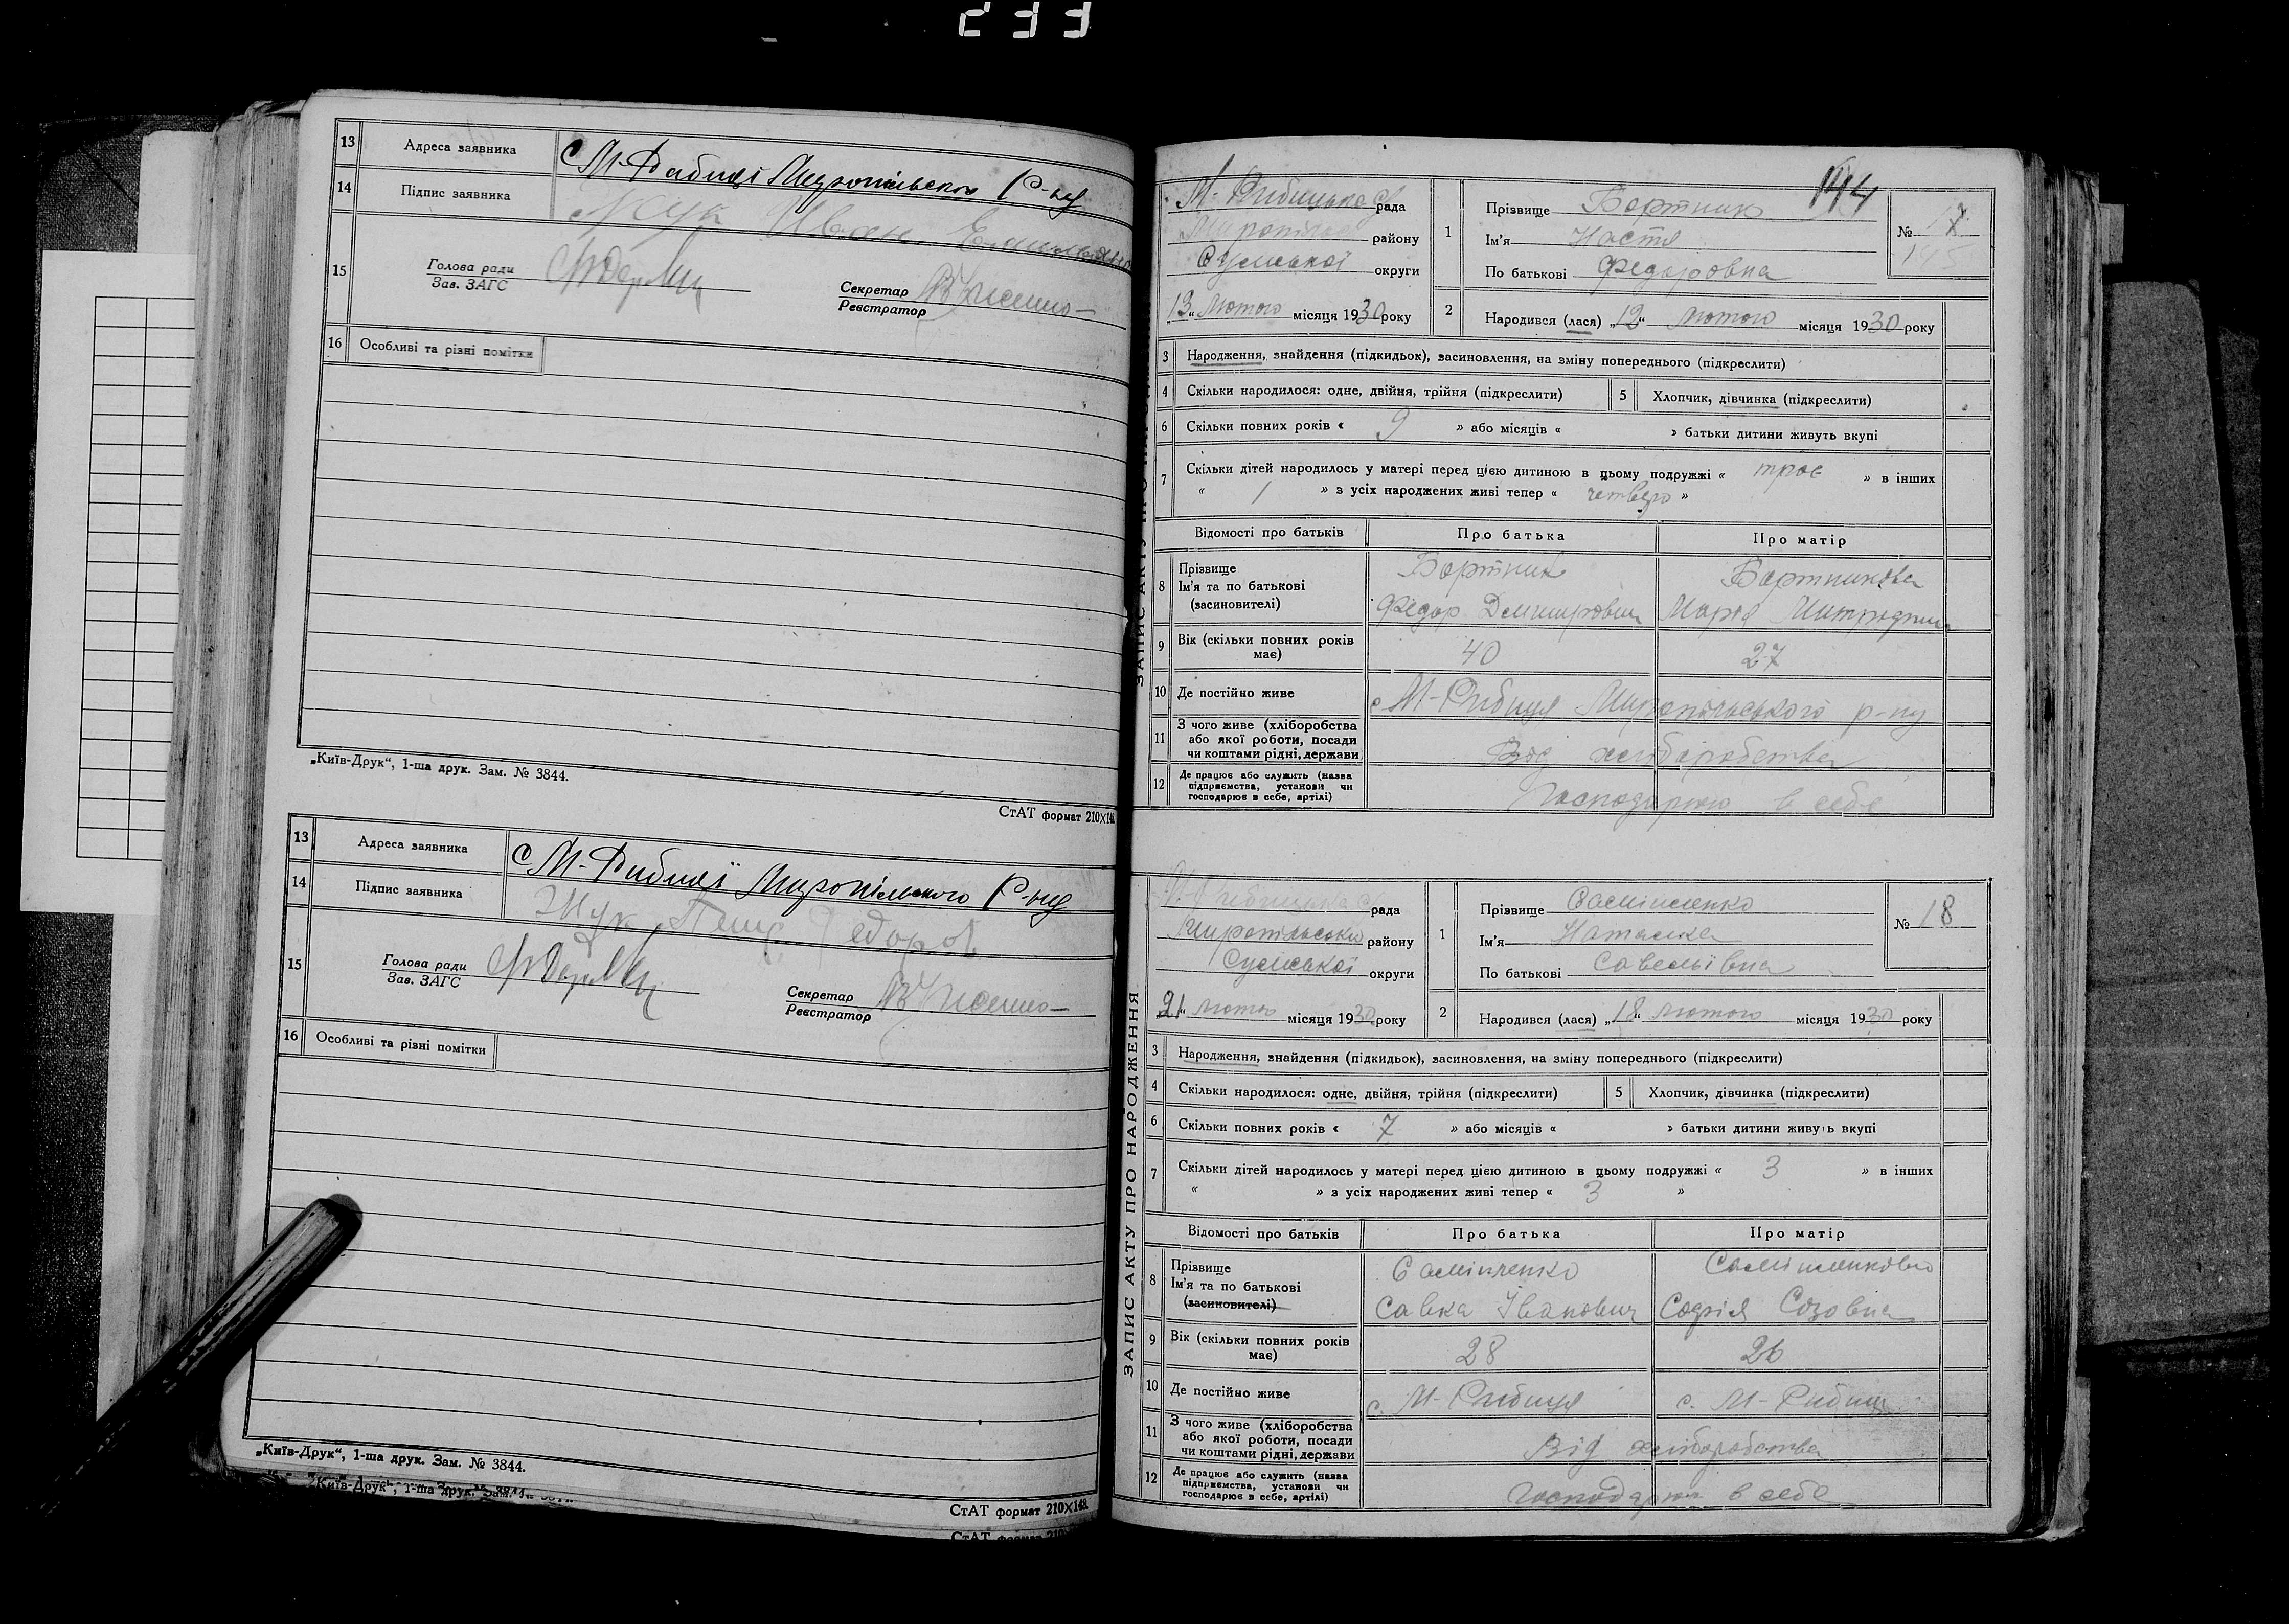 233
13 Адреса заявника С М-Рибиці Миропільского Р-ну
14 Підпис заявника Жук Иван
15 Голова ради
Зав. ЗАГС
Секретар
Реєстратор
16 Особливі та різні помітки
„Київ-Друк“, 1-ша друк. Зам. № 3844.
СтАТ формат 210×148.
13 Адреса заявника С М-Рибиці Миропільского Р-ну
14 Підпис заявника Жук
15 Голова ради
Зав. ЗАГС
Секретар
Реєстратор
16 Особливі та різні помітки
„Київ-Друк“, 1-ша друк. Зам. № 3844.
„Київ-Друк“, 1-ша друк. Зам.
СтАТ формат 210×148.
144
М-Рибицька рада
району
Сумської округи
„12“ лютого місяця 1930 року
1 Прізвище Бортник
Ім'я Настя
По батькові Федоровна
№ 17
2 Народився (лася) „12“ лютого місяця 1930 року
3 Народження, знайдення (підкидьок), засиновлення, на зміну попереднього (підкреслити)
4 Скільки народилося: одне, двійня, трійня (підкреслити) 5 Хлопчик, дівчинка (підкреслити)
6 Скільки повних років « 9 » або місяців « » батьки дитини живуть вкупі
7 Скільки дітей народилось у матері перед цією дитиною в цьому подружжі « троє » в інших
« 1 » з усіх народжених живі тепер « четверо »
Відомості про батьків Про батька Про матір
8 Прізвище Бортник Бортникова
Ім'я та по батькові
(засиновителі) Федор Марія
9 Вік (скільки повних років має) 40 27
10 Де постійно живе с М-Рибиця Миропільського р-ну
11 З чого живе (хліборобства
або якої роботи, посади
чи коштами рідні, держави Від хліборобства
12 Де працює або служить (назва
підприємства, установи чи
господарює в себе, артілі) Господарює в себе
ЗАПИС АКТУ ПРО НАРОДЖЕННЯ
М-Рибицька рада
Миропільськ району
Сумської округи
„21“ лютого місяця 1930 року
1 Прізвище
Ім'я Наталка
По батькові Савельівна
№ 18
2 Народився (лася) „18“ лютого місяця 1930 року
3 Народження, знайдення (підкидьок), засиновлення, на зміну попереднього (підкреслити)
4 Скільки народилося: одне, двійня, трійня (підкреслити) 5 Хлопчик, дівчинка (підкреслити)
6 Скільки повних років « 7 » або місяців « » батьки дитини живуть вкупі
7 Скільки дітей народилось у матері перед цією дитиною в цьому подружжі « 3 » в інших
« » з усіх народжених живі тепер « 3 »
Відомості про батьків Про батька Про матір
8 Прізвище
Ім'я та по батькові
(засиновителі) Савка Іванович Софія Созовна
9 Вік (скільки повних років має) 28 26
10 Де постійно живе с. М-Рибиця с. М-Рибиця
11 З чого живе (хліборобства
або якої роботи, посади
чи коштами рідні, держави Від хліборобства
12 Де працює або служить (назва
підприємства, установи чи
господарює в себе, артілі) Господарює в себе